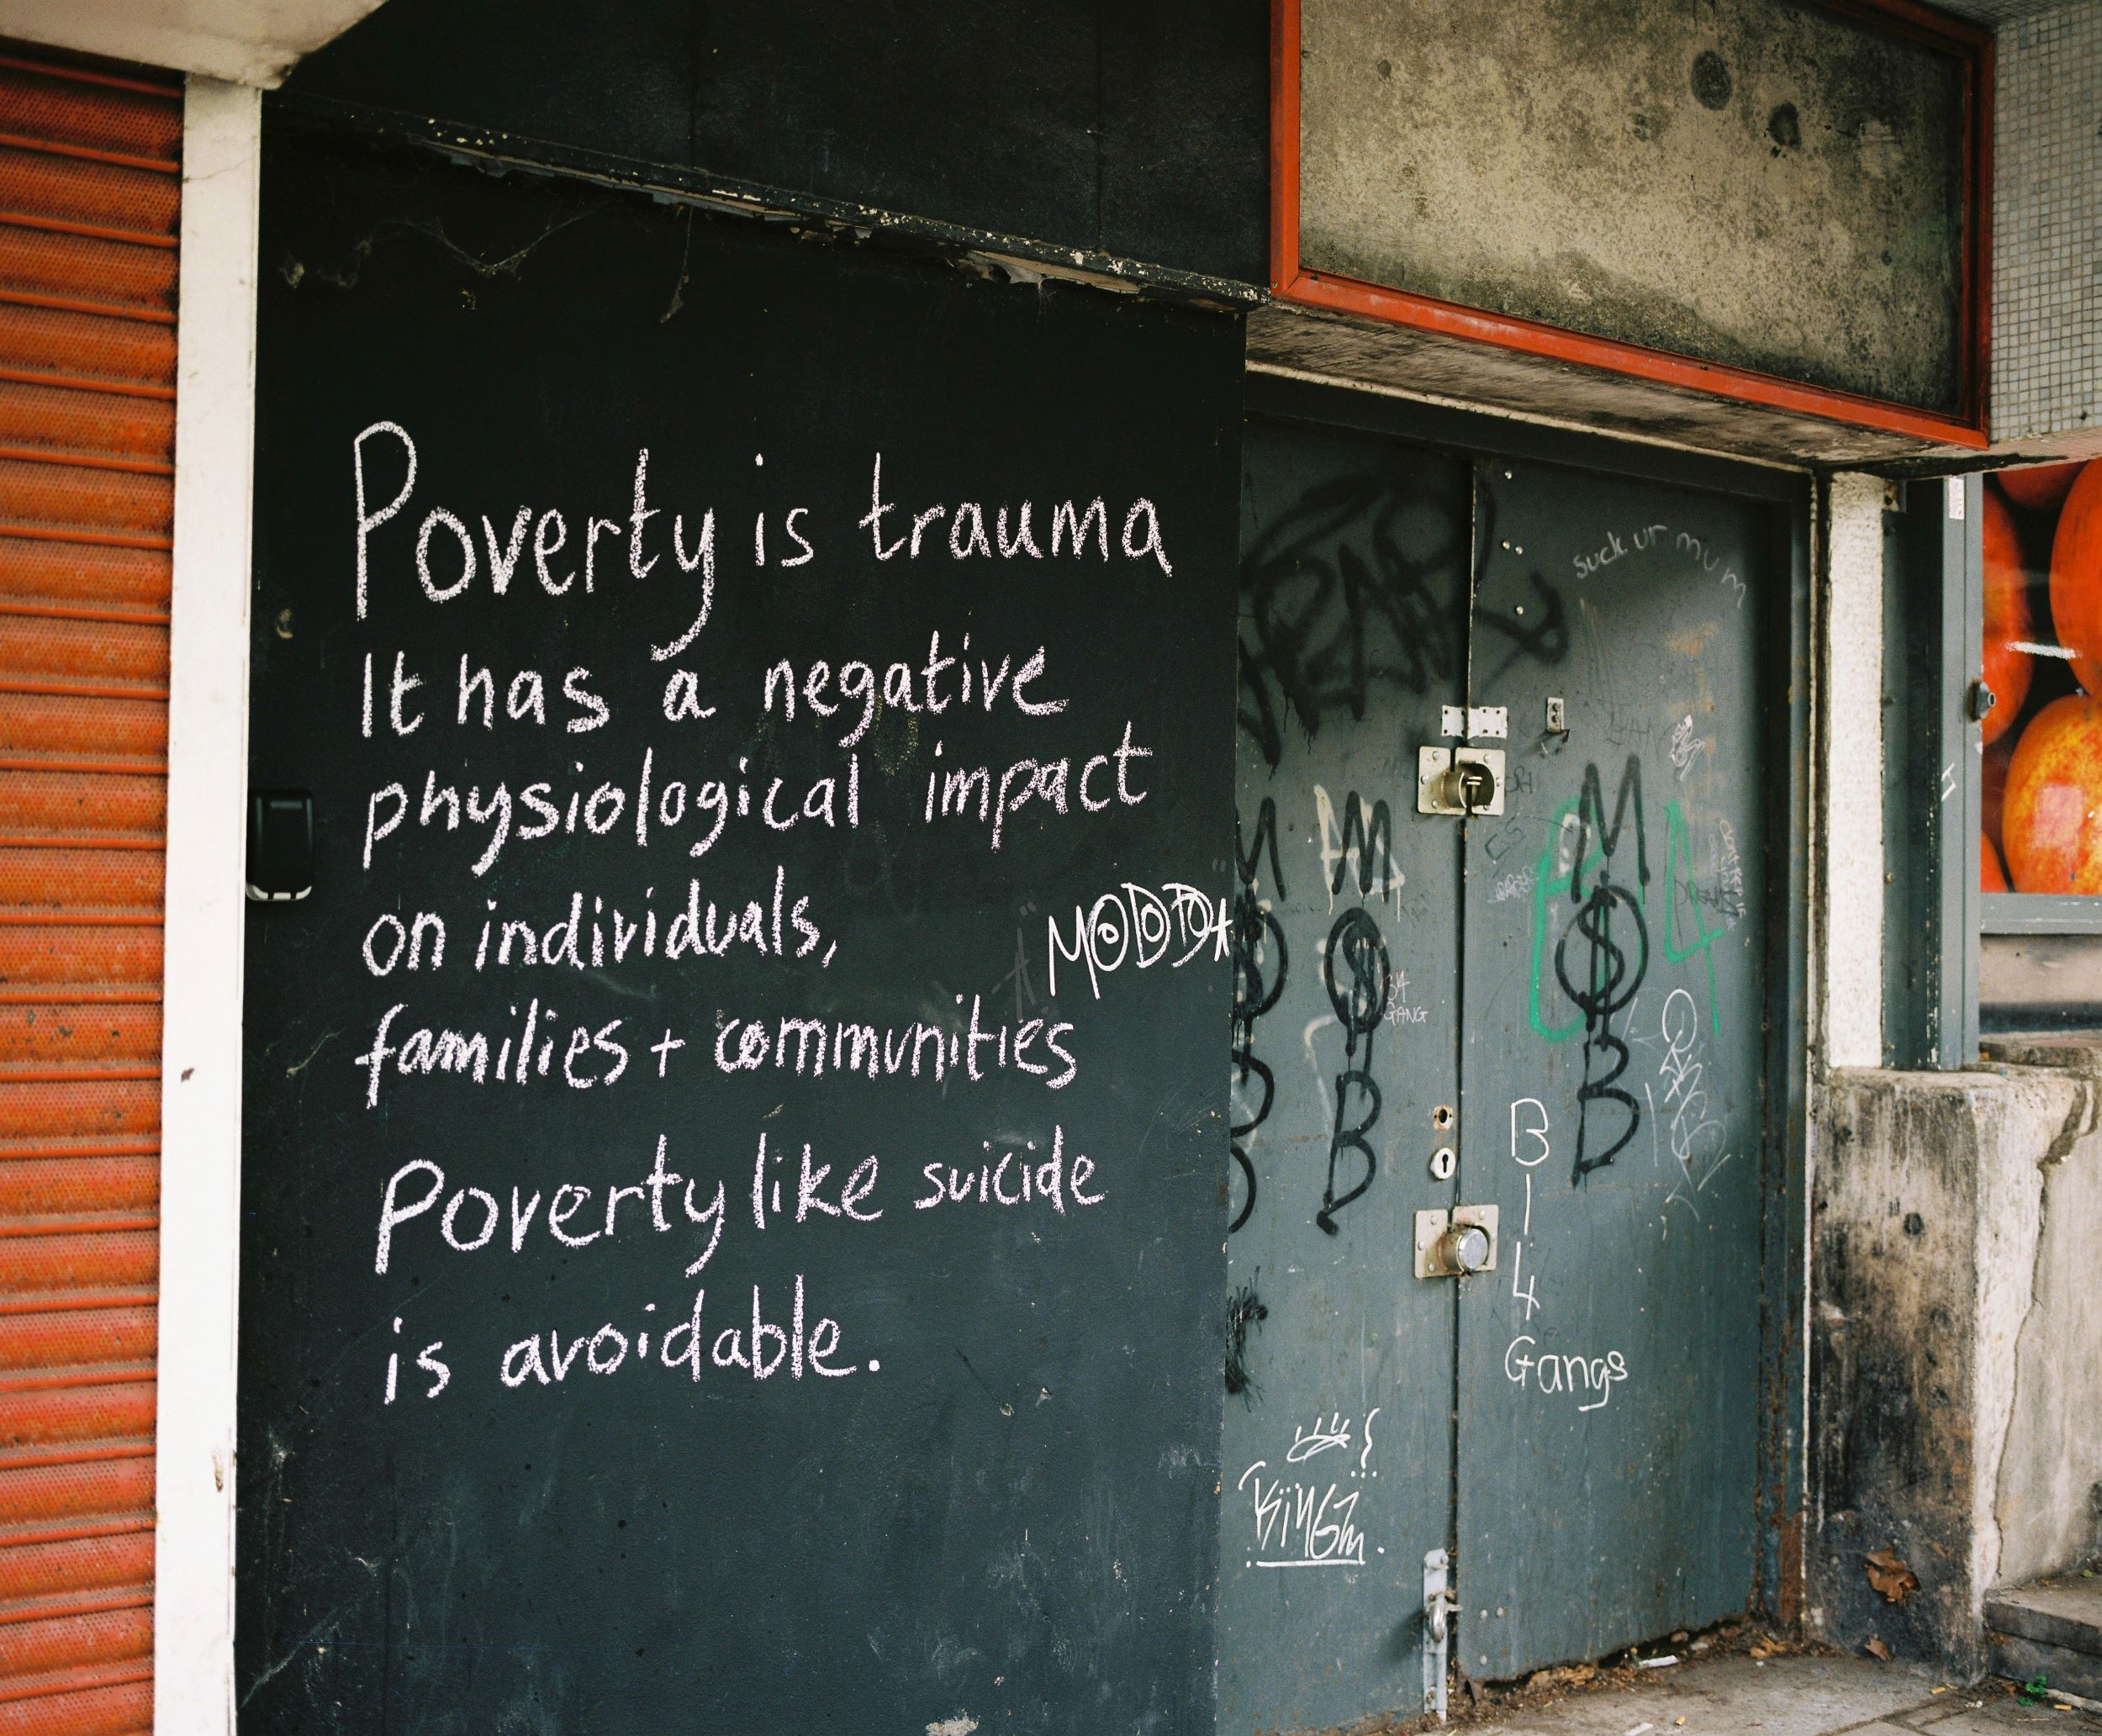 Poverty is trauma
It has a negative
physiological impact
on individuals,
families + communities
Poverty like suicide
is avoidable.
MODDA
suck ur mum
M
$
B
M
$
B
GANG
B
I
4
Gangs
KiNGZ